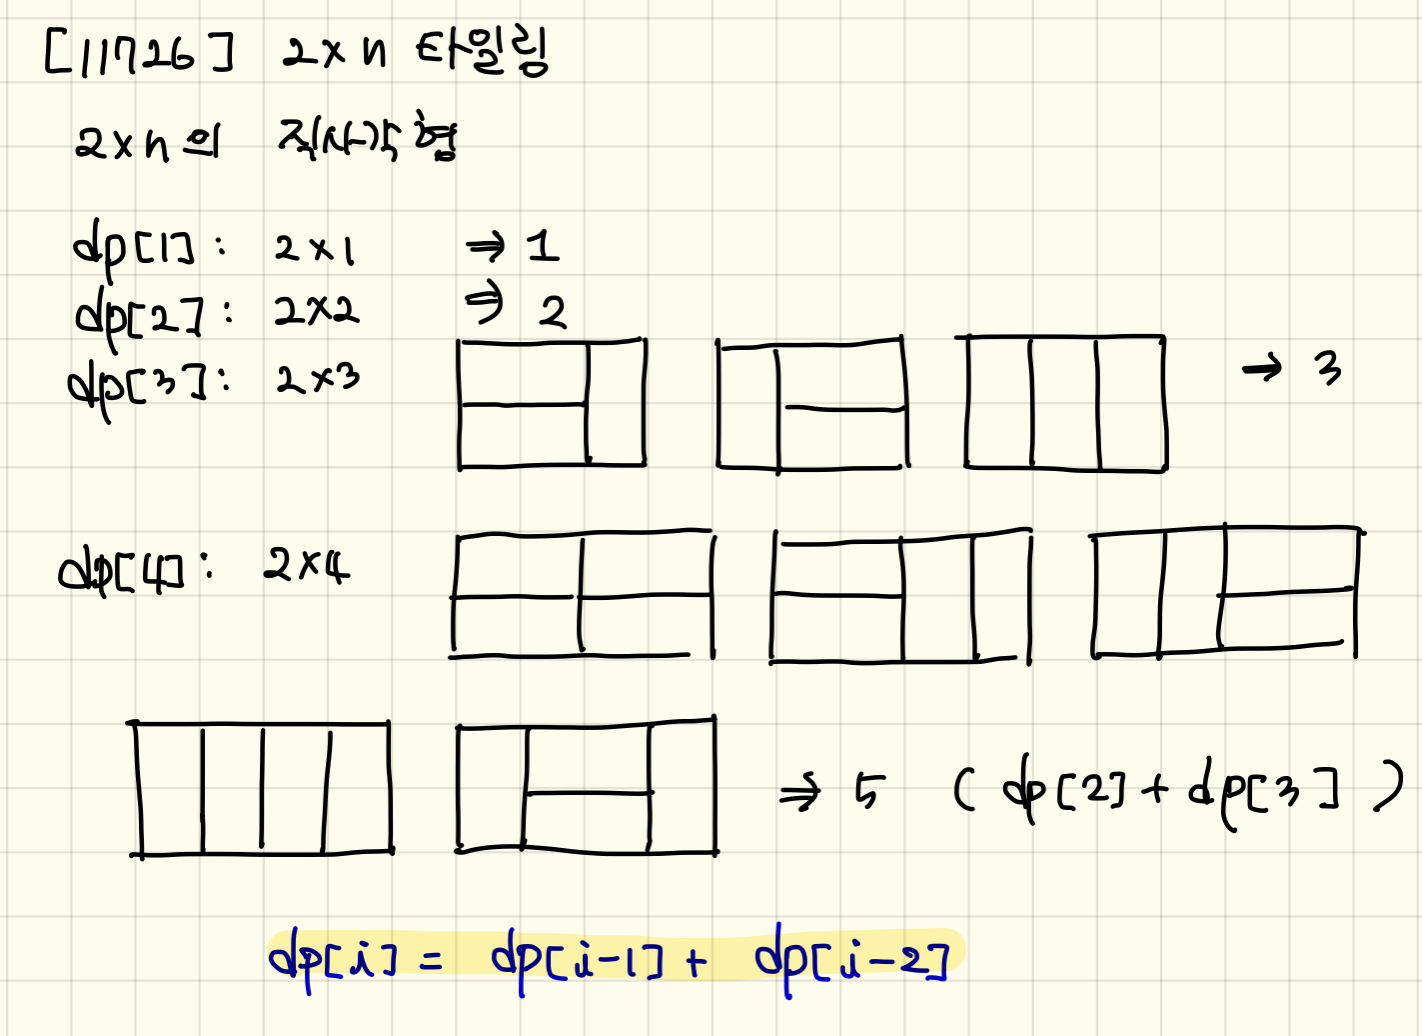 [11726] 2×n 타일링
2×n의 직사각형
dp[1]: 2×1 ⇒ 1
dp[2]: 2×2 ⇒ 2
dp[3]: 2×3 → 3
dp[4]: 2×4
⇒ 5 ( dp[2] + dp[3] )
dp[i] = dp[i-1] + dp[i-2]